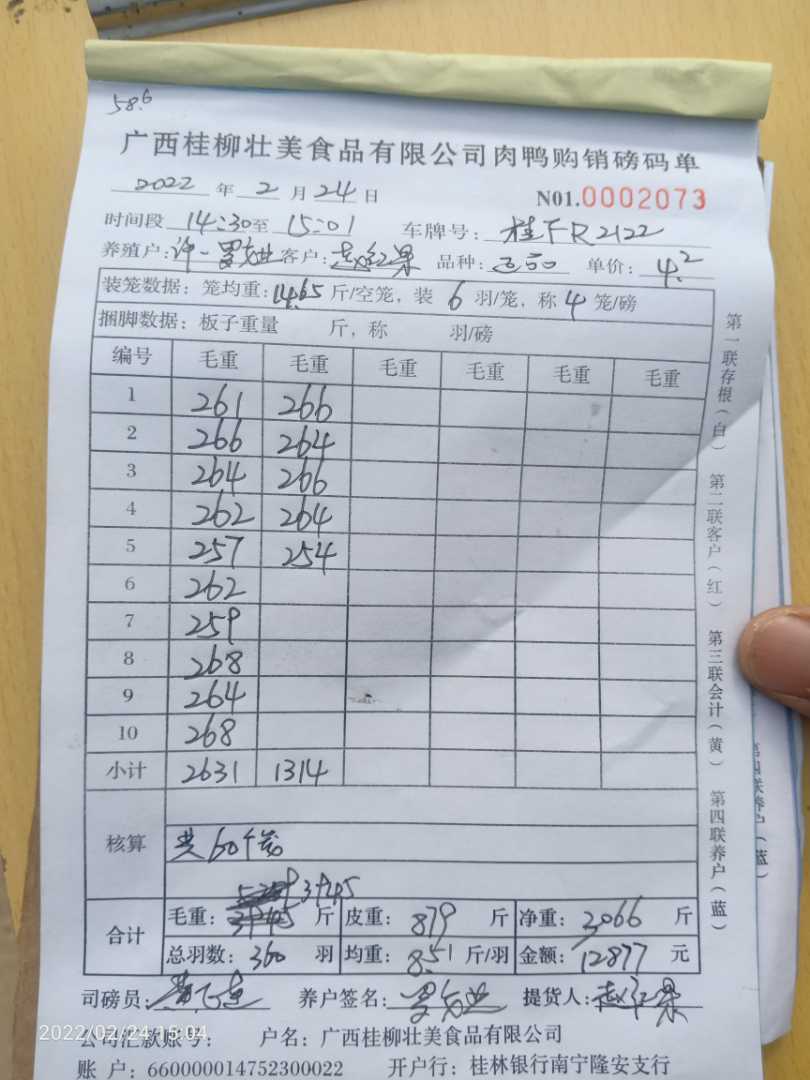 58.6
广西桂柳壮美食品有限公司肉鸭购销磅码单
2022 年 2 月 24 日 N01.0002073
时间段 14:30 至 15:01 车牌号: 桂FR2122
养殖户: 许一罗 客户: 赵红果 品种: 单价: 4.2
装笼数据: 笼均重: 14.65 斤/空笼, 装 6 羽/笼, 称 4 笼/磅
捆脚数据: 板子重量 斤, 称 羽/磅
编号 毛重 毛重 毛重 毛重 毛重 毛重
1 261 266
2 266 264
3 264 266
4 262 264
5 257 254
6 262
7 259
8 268
9 264
10 268
小计 2631 1314
核算 共60个笼
3945
合计 毛重: 3945 斤 皮重: 879 斤 净重: 3066 斤
总羽数: 360 羽 均重: 8.51 斤/羽 金额: 12877 元
司磅员: 养户签名: 提货人: 赵红果
2022/02/24 15:04
公司汇款账号: 户名: 广西桂柳壮美食品有限公司
账 户: 660000014752300022 开户行: 桂林银行南宁隆安支行
第一联存根(白) 第二联客户(红) 第三联会计(黄) 第四联养户(蓝)